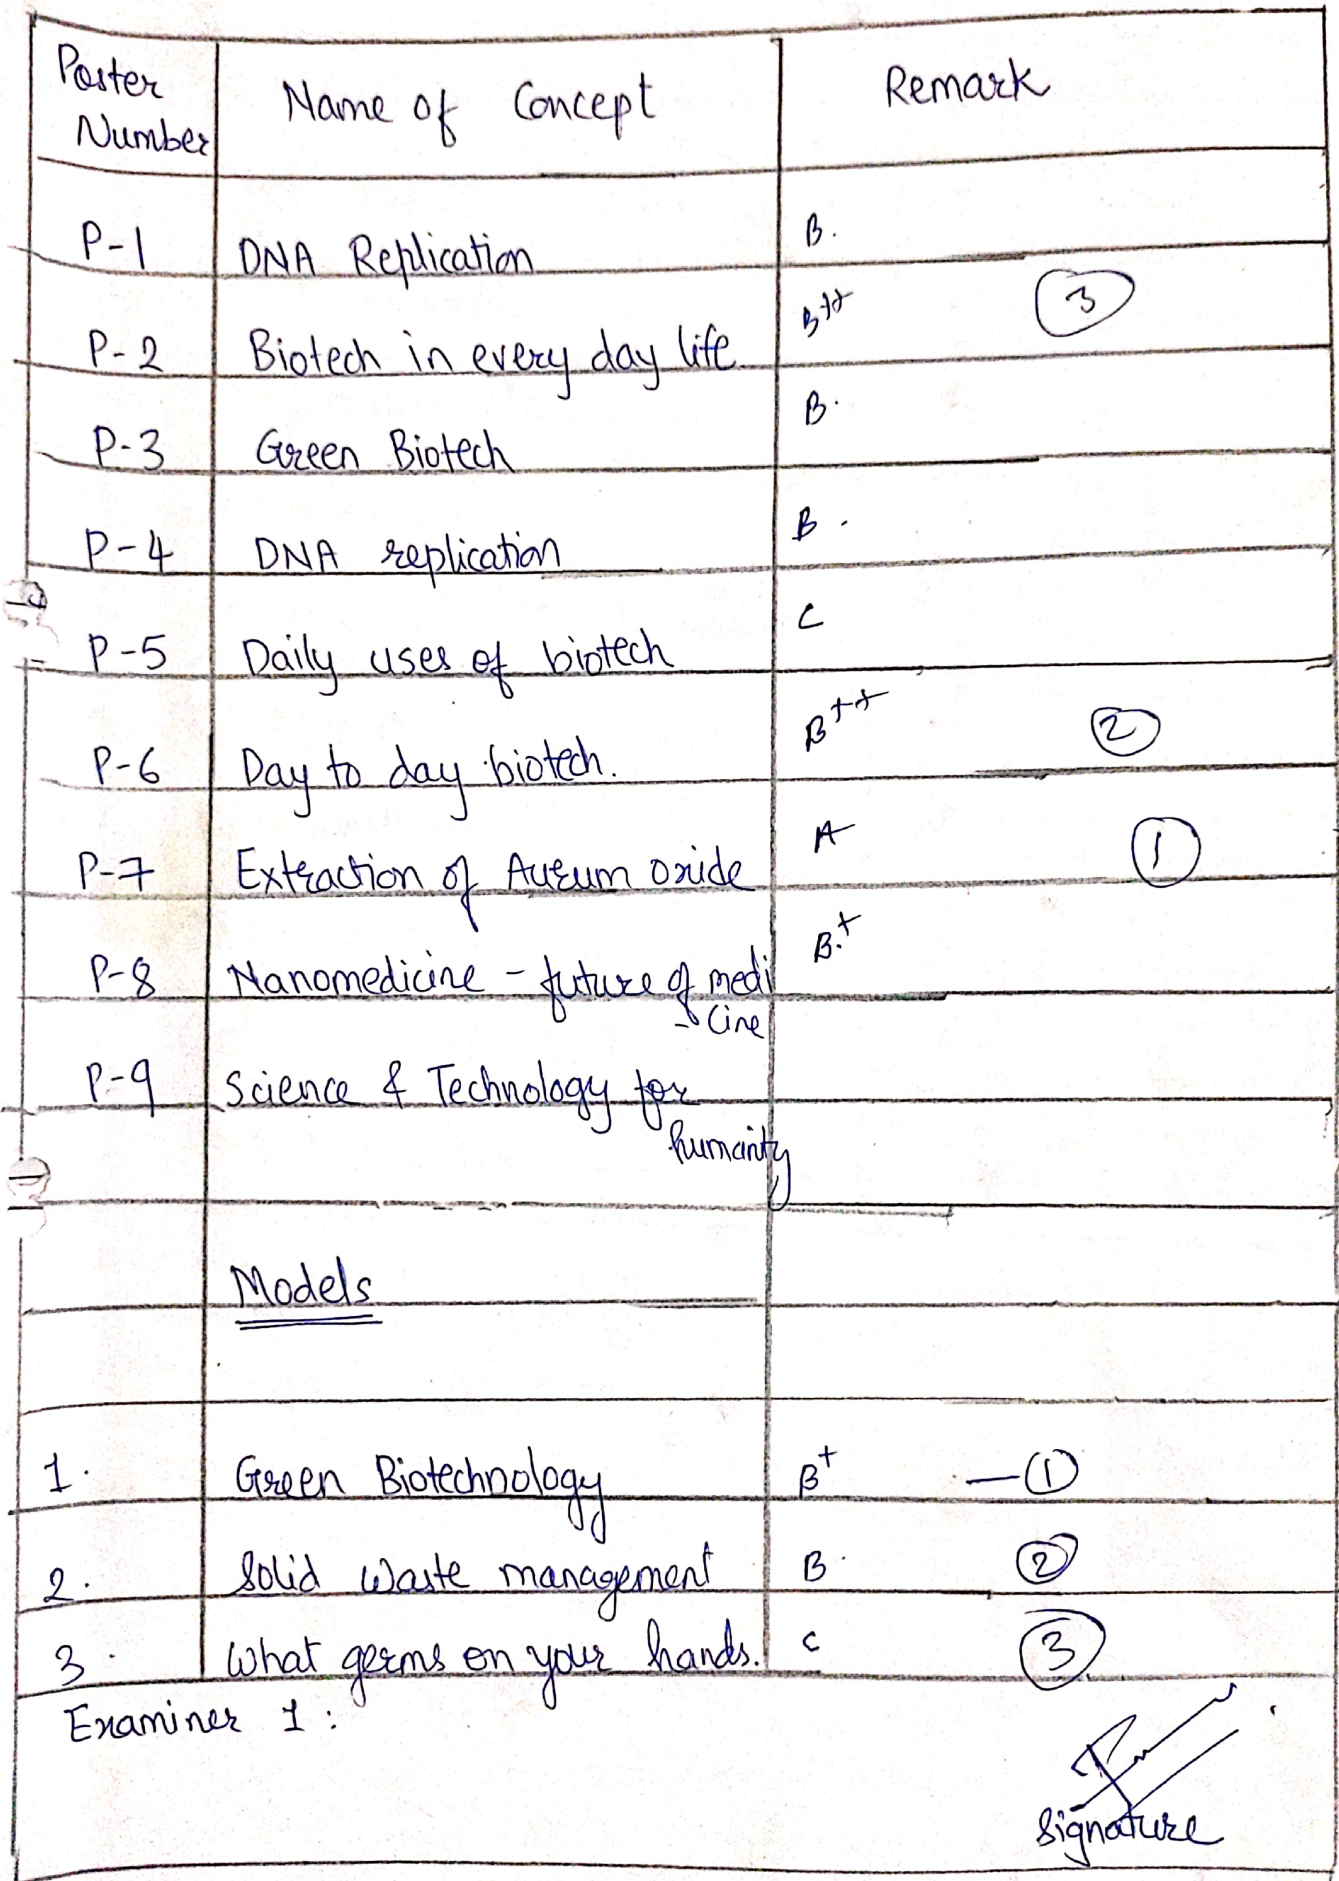 Poster Number Name of Concept Remark
P-1 DNA Replication B.
P-2 Biotech in every day life. B++ 3
P-3 Green Biotech B.
P-4 DNA replication B.
P-5 Daily uses of biotech C
P-6 Day to day biotech. B++ 2
P-7 Extraction of Aurum oxide A 1
P-8 Nanomedicine - future of medi B.+
- cine
P-9 Science & Technology for
humanity
Models
1. Green Biotechnology B+ — 1
2. Solid Waste management B. 2
3. What germs on your hands. C 3
Examiner 1:
Signature